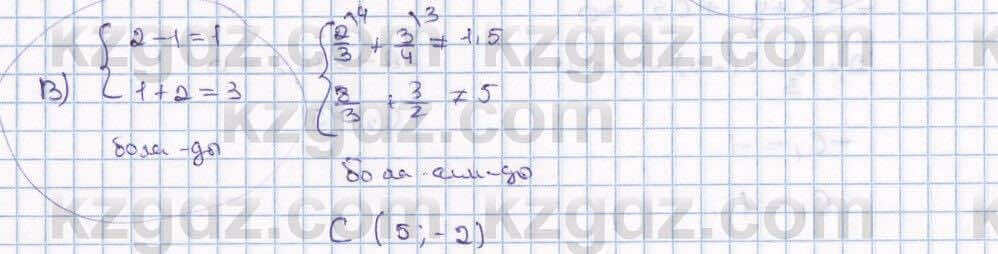 B) { 2 - 1 = 1
1 + 2 = 3
бола-ды
{ 2/3 \4 + 3/4 \3 ≠ 1,5
8/3 + 3/2 ≠ 5
бола-алм-ды
C (5; -2)
kzgdz.com
kzgdz.com
kzgdz.com
kzgdz.com
kzgdz.com